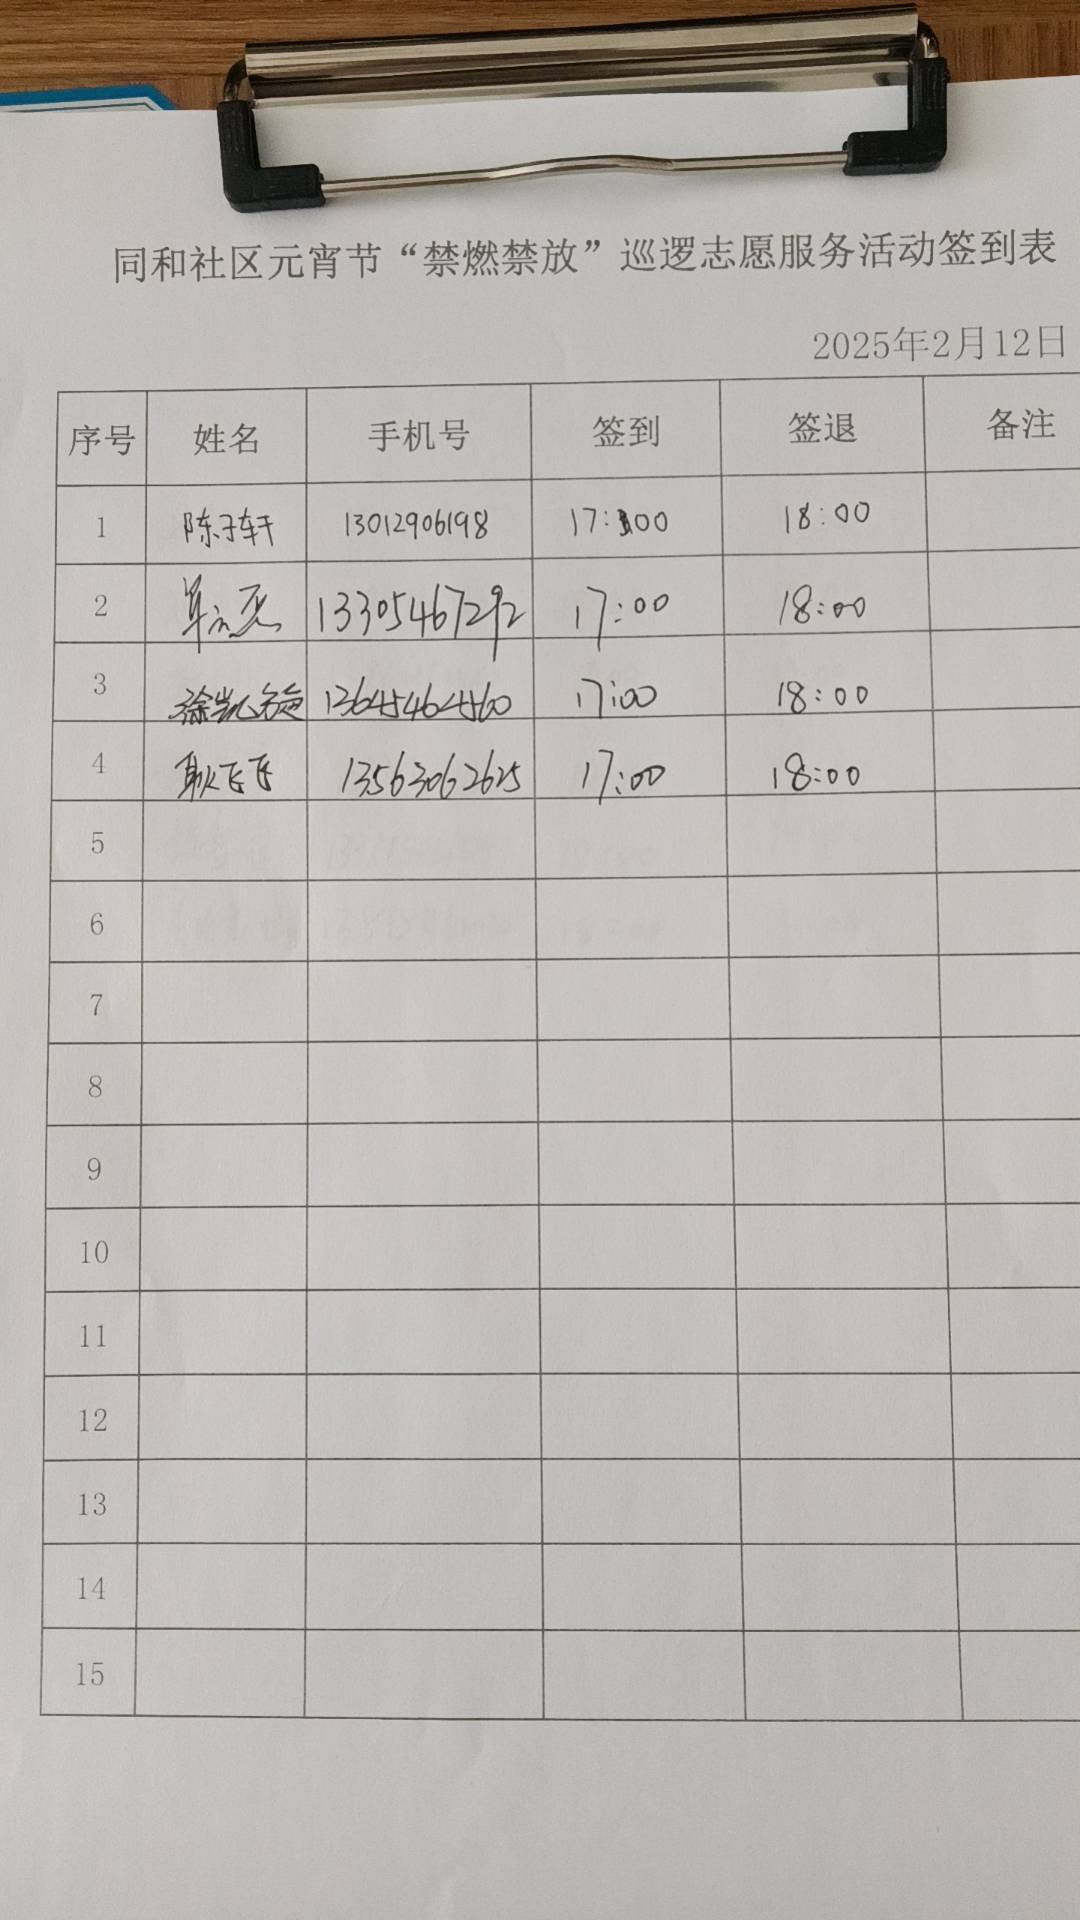 同和社区元宵节“禁燃禁放”巡逻志愿服务活动签到表
2025年2月12日
序号 姓名 手机号 签到 签退 备注
1 陈子轩 13012906198 17:00 18:00
2 13305467292 17:00 18:00
3 徐凯 13645464560 17:00 18:00
4 耿飞飞 13563062625 17:00 18:00
5
6
7
8
9
10
11
12
13
14
15